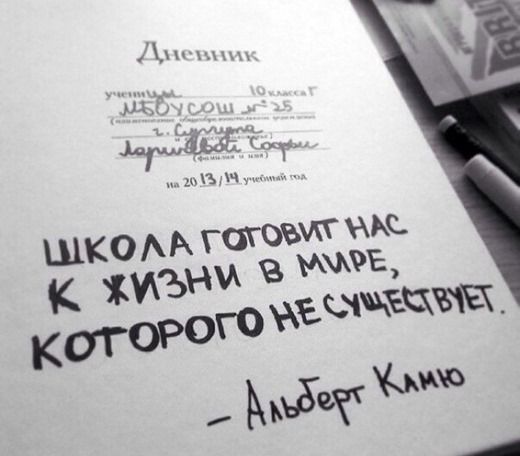 Дневник
ученицы 10 класса Г
МБОУСОШ №25
(наименование общеобразовательного учреждения
г. Сургута
Лариčевой Софьи
(фамилия и имя)
на 20 13/14 учебный год
ШКОЛА ГОТОВИТ НАС
К ЖИЗНИ В МИРЕ,
КОТОРОГО НЕ СУЩЕСТВУЕТ.
– Альберт Камю